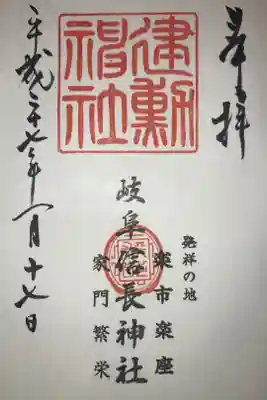 奉拝
建勲神社
発祥の地
楽市楽座
岐阜信長神社
家門繁栄
平成二十七年一月十七日